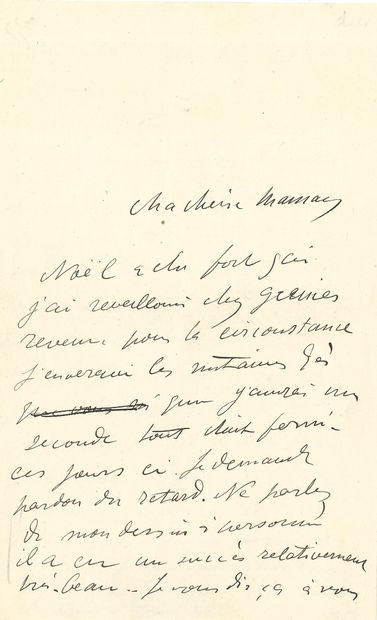 Ma chère Maman
Noël a été fort gai
j'ai reveillonné chez Grenier
revenu pour la circonstance
j'enverrai les mitaines dès
que j'aurai vu
seconde tout était fermé
ces jours ci. Je demande
pardon du retard. Ne parlez
de mon dessin à personne
il a eu un succès relativement
très beau -- Je vous dis ça à vous